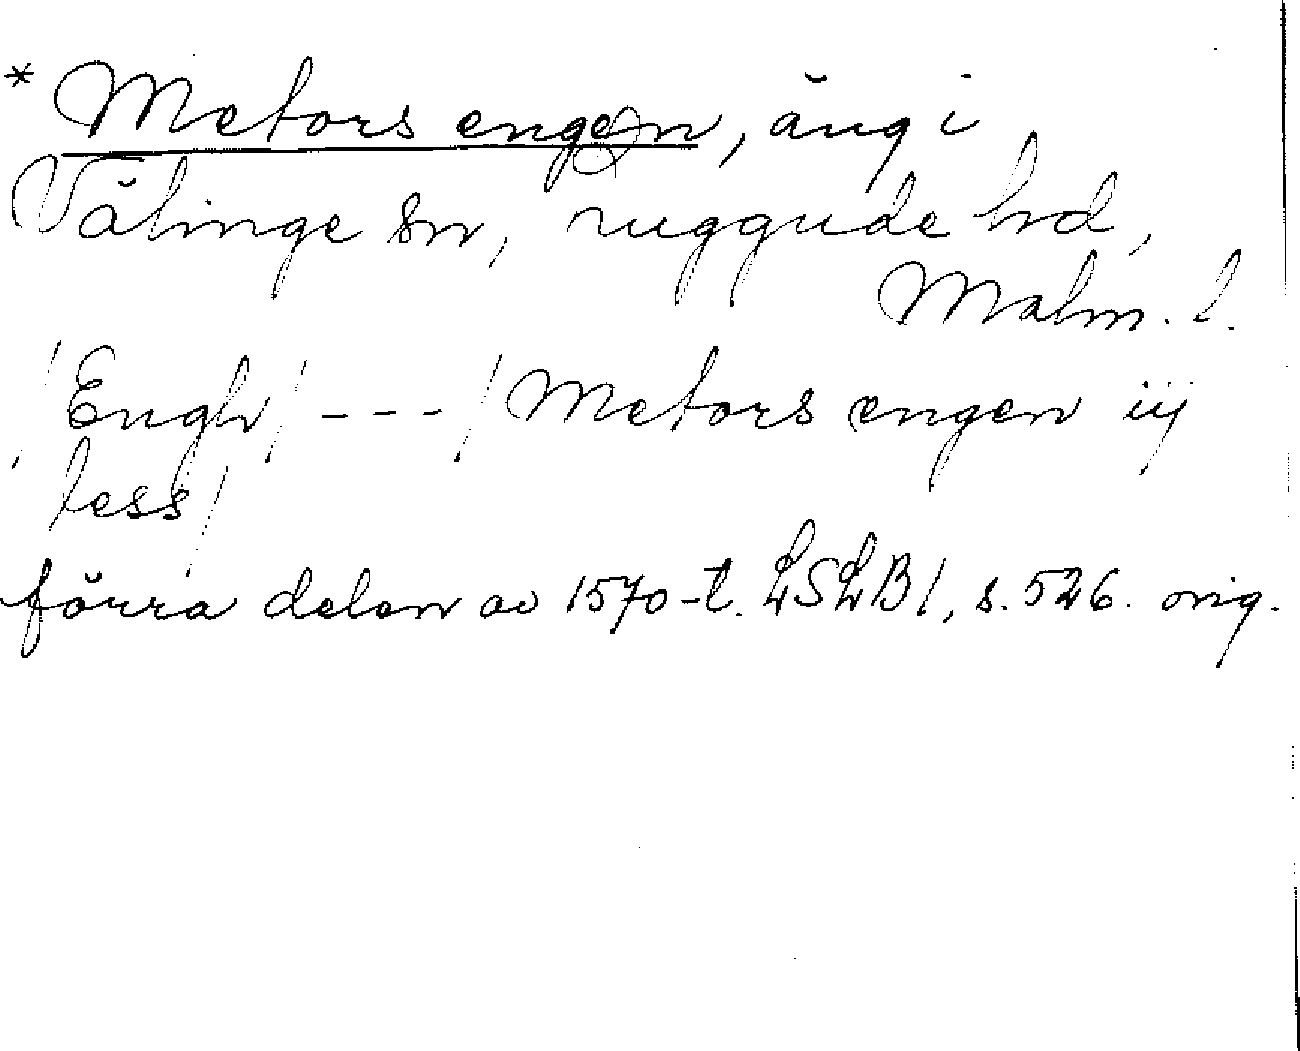 * Metors engen, äng i
Välinge sn, ruggude hd,
Malm. l.
/Engh/ --- / Metors engen iij
less/
förra delen av 1570-t. LSLB1, s. 526. orig.